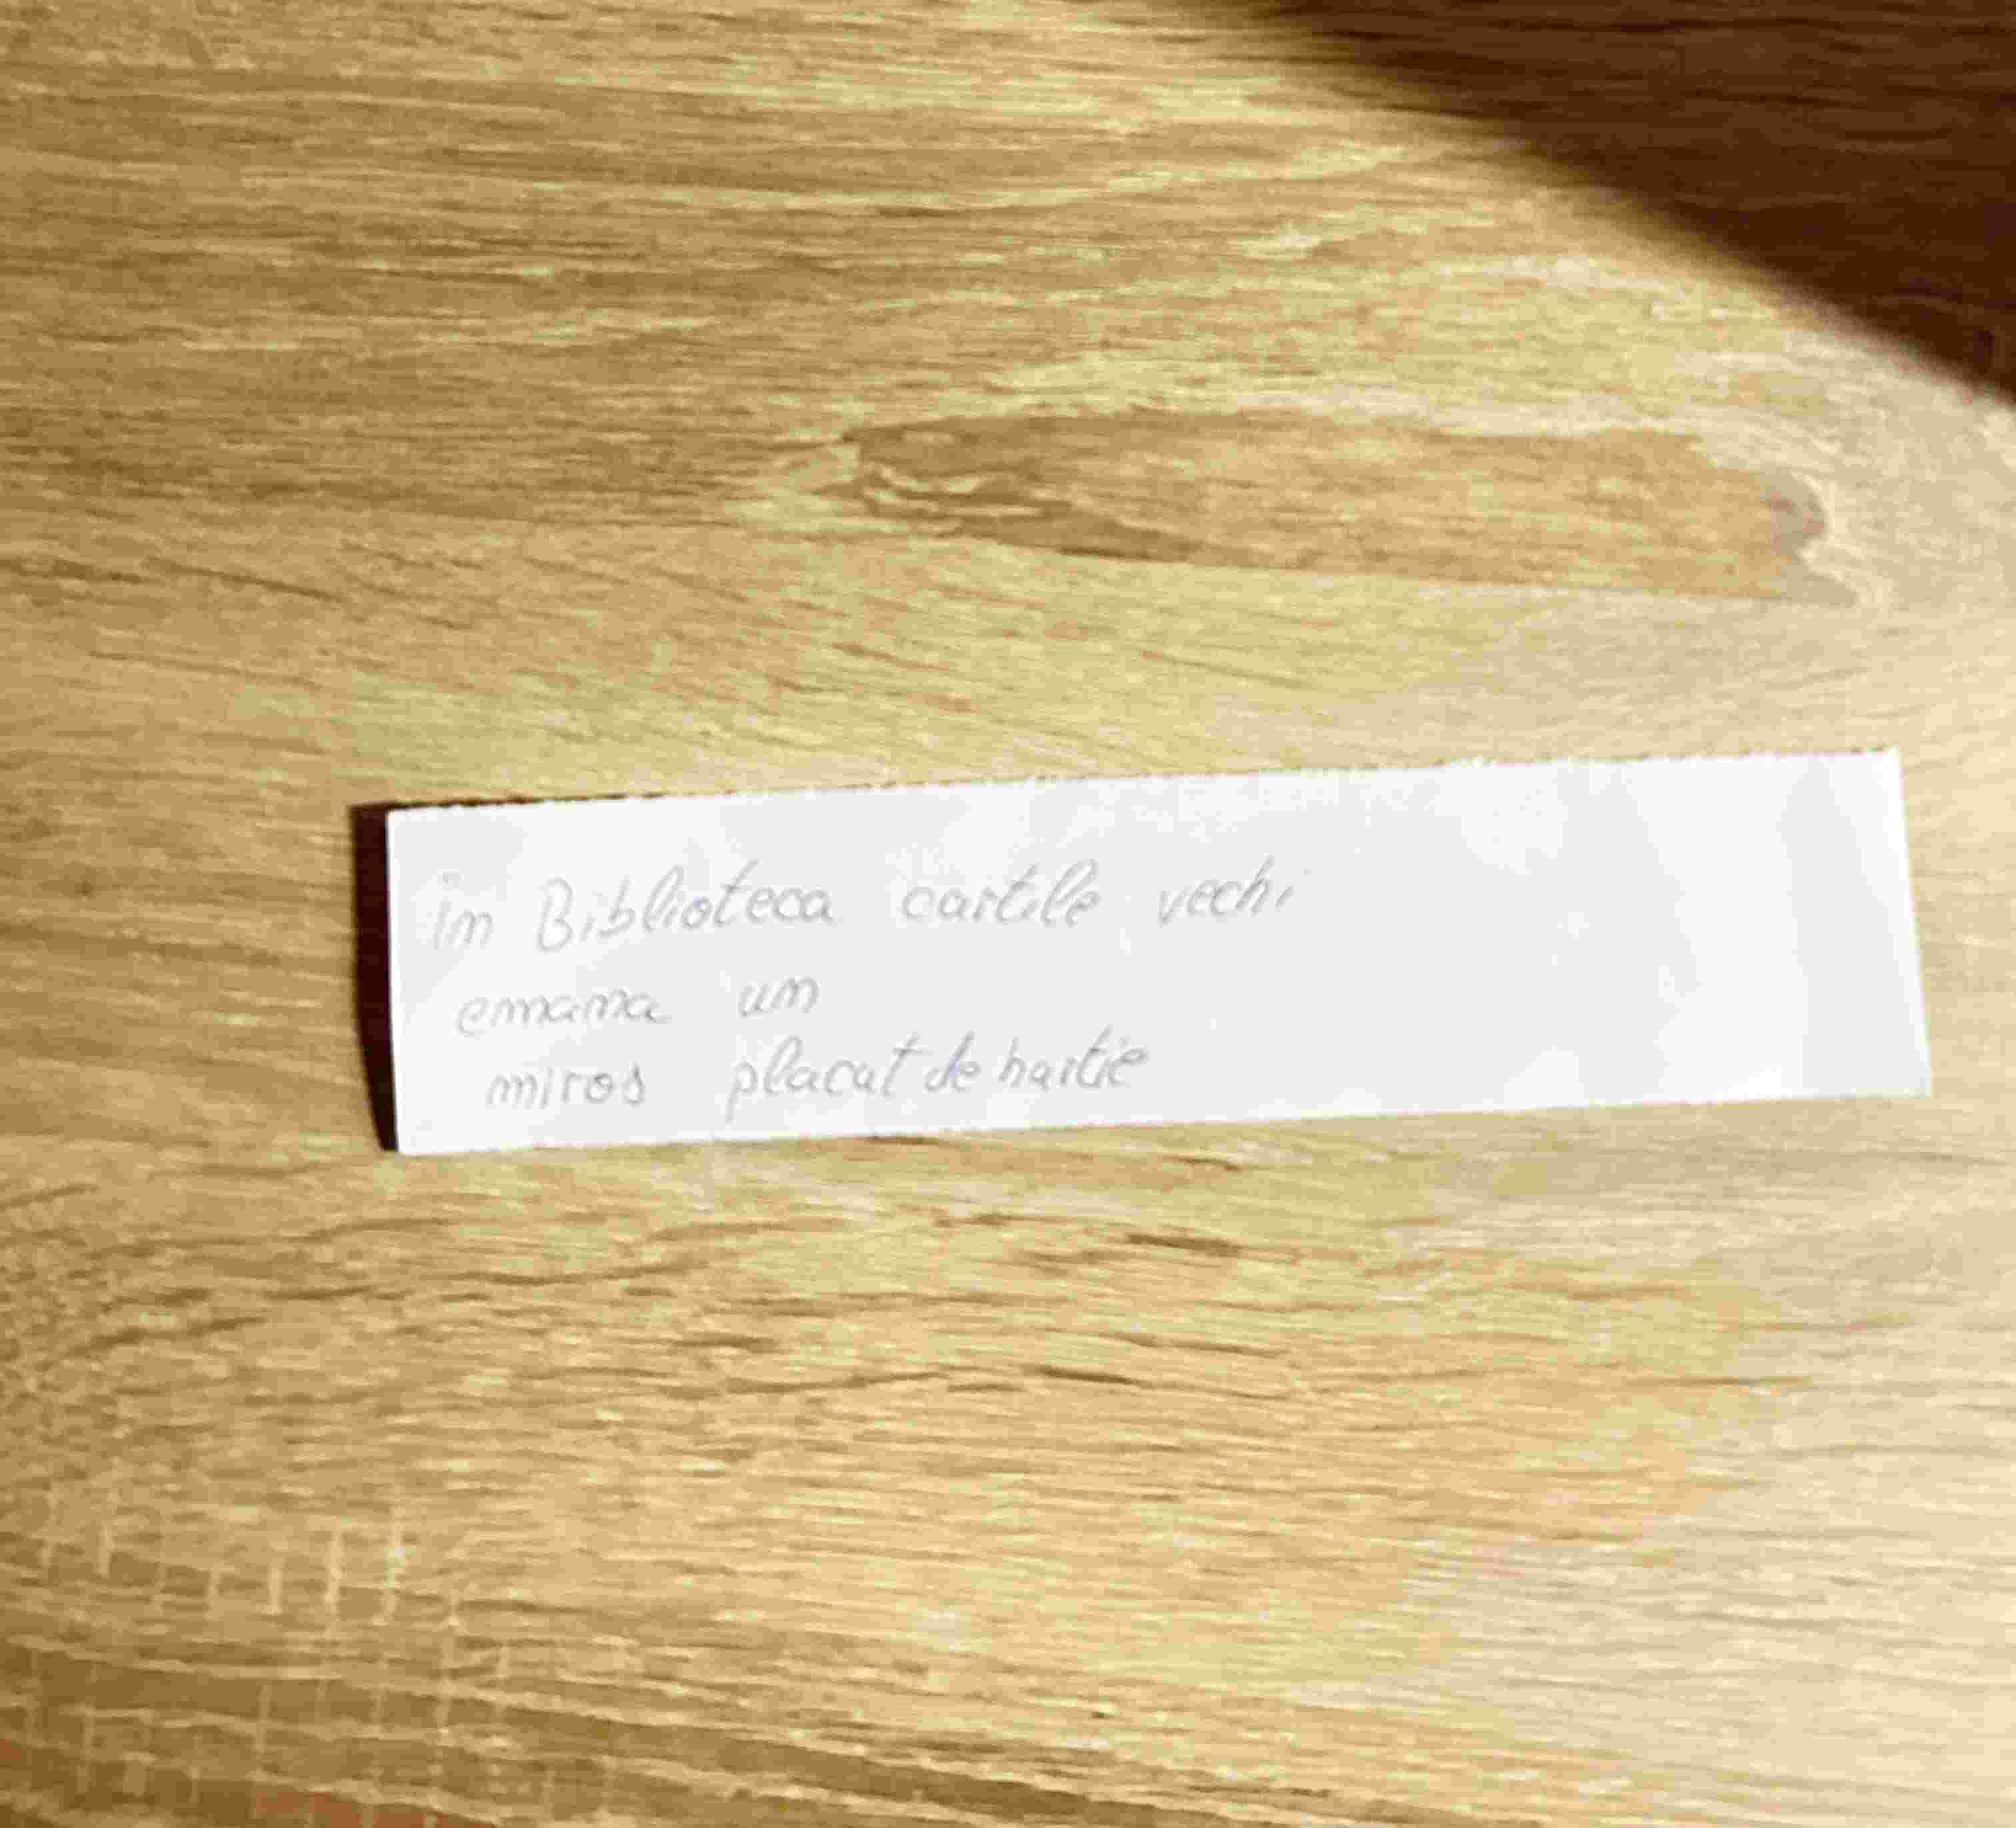 în Biblioteca cartile vechi
emana un
miros placut de hartie